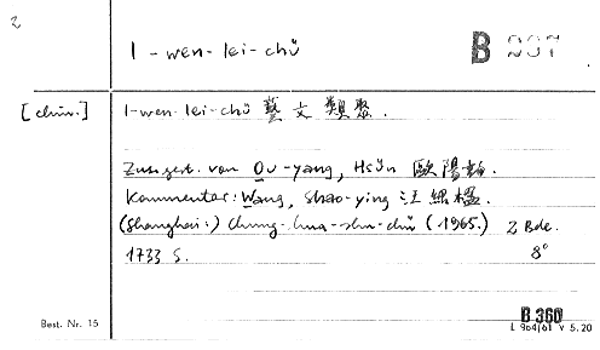 2
I-wen-lei-chü
B 997
[chin.]
I-wen-lei-chü 藝文類聚.
Zusgest. von Ou-yang, Hsün 歐陽詢.
Kommentar: Wang, Shao-ying 汪紹楹.
(Shanghai:) Chung-hua-shu-chü (1965.) 2 Bde.
1733 S. 8°
Best. Nr. 15
B 360
L 904/61 V 5.20